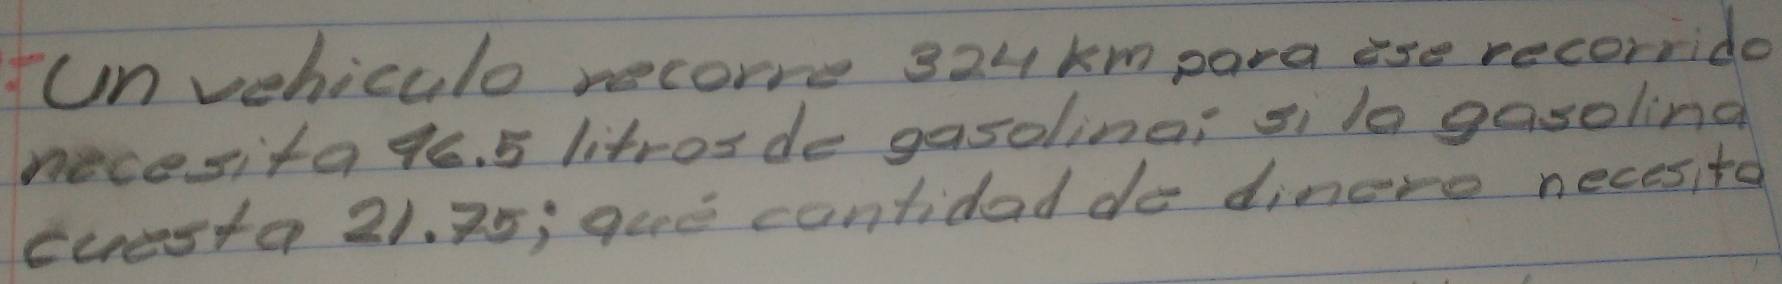 Un vehiculo recorre 324 km para ese recorrido
necesita 46.5 litros de gasolina; si la gasolina
cuesta 21.75; qué cantidad de dinero necesita